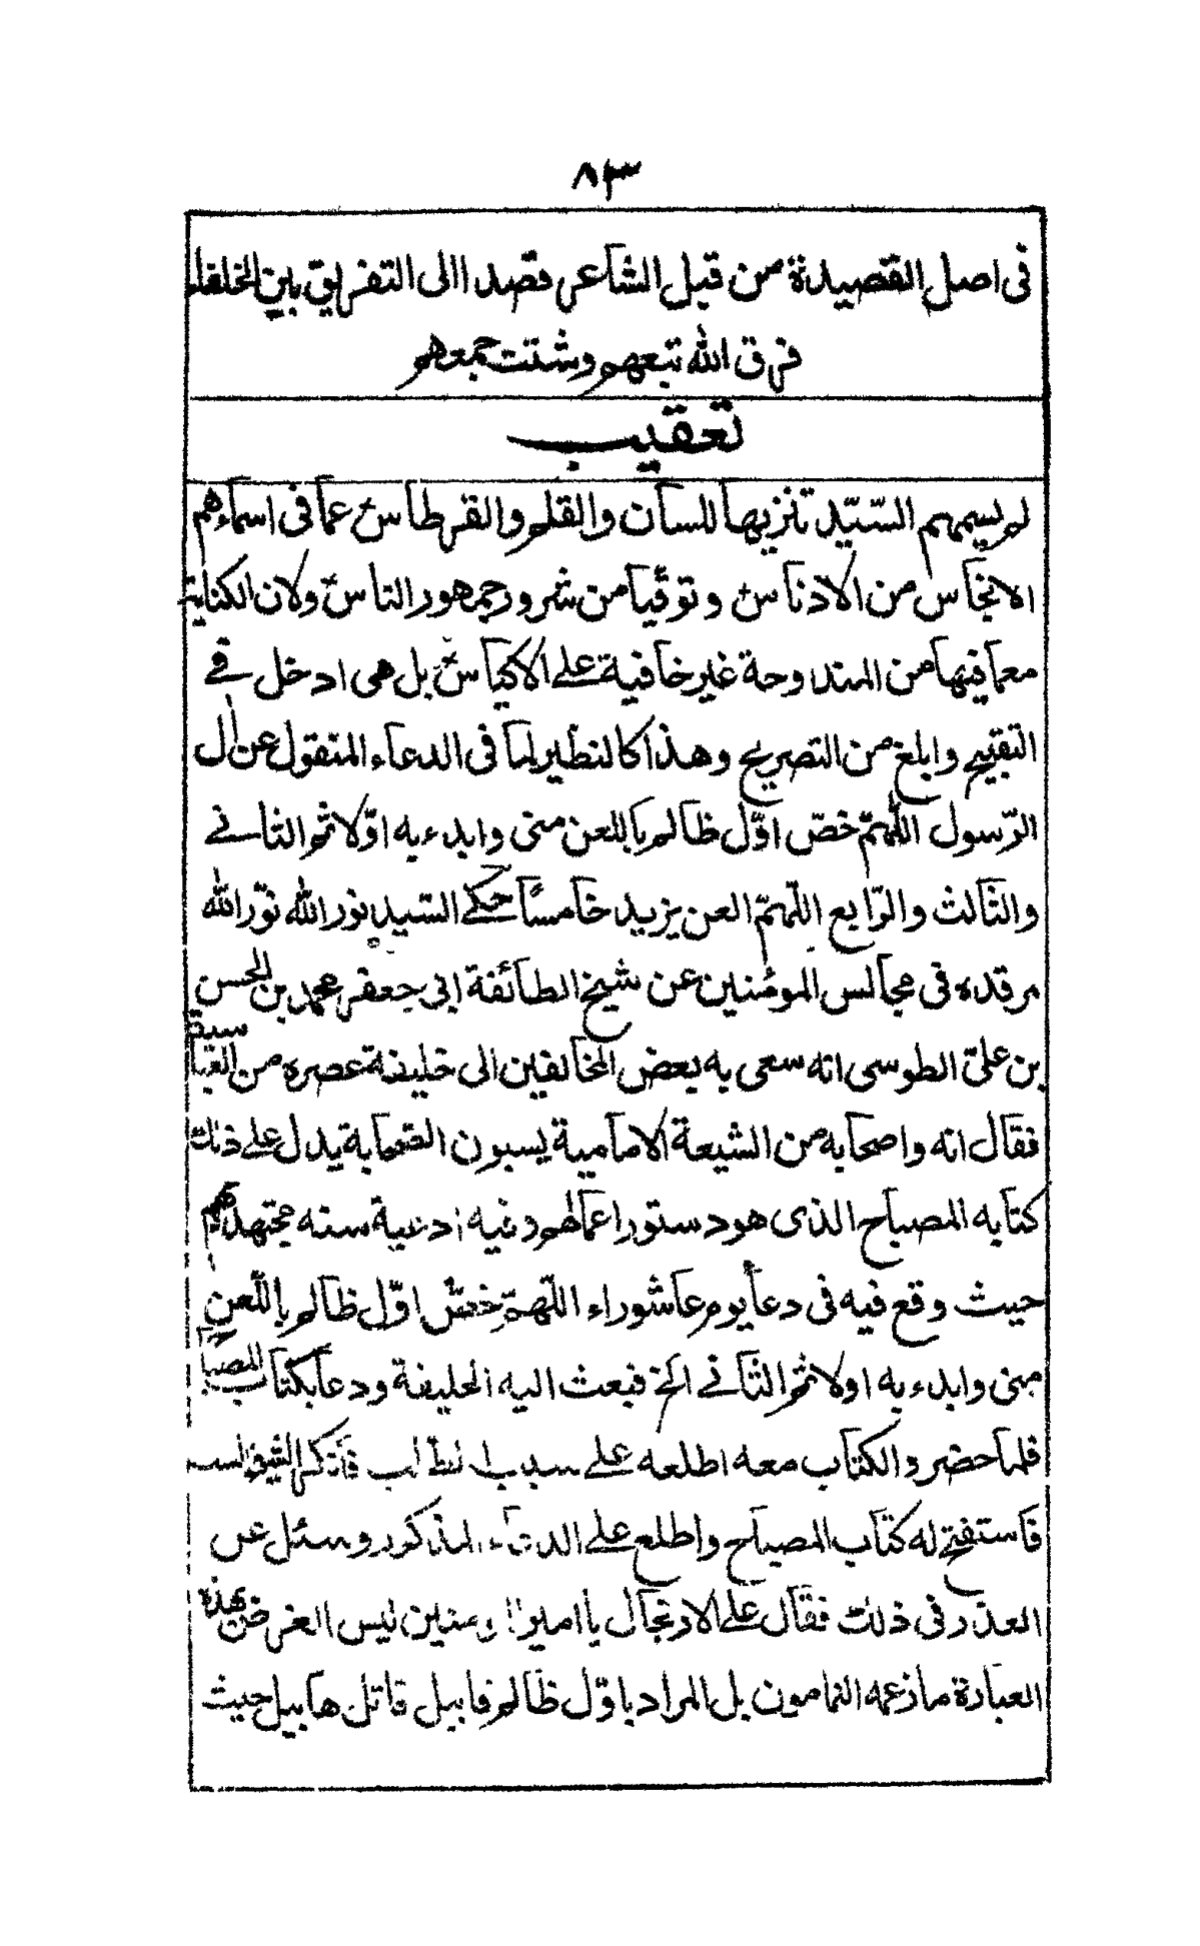 ٨٣
فى اصل القصيدة من قبل الشاعر قصدا الى التفريق بين الخلفاء
فرق الله تبعهم وشتت جمعهم
تعقيب
لم يسمهم السّيّد تنزيها للسان والقلم والقرطاس عما فى اسماءهم
الانجاس من الادناس وتوقّيا من شرور جمهور الناس ولان الكناية
معما فيها من المندوحة غير خافية على الاكياس بل هى ادخل فے
التقبيح وابلغ من التصريح وهذا كالنظير لما فى الدعاء المنقول عن ال
الرّسول اللّهمّ خصّ اوّل ظالم باللعن منى وابدء به اوّلا ثم الثانے
والثالث والرّابع اللّهمّ العن يزيد خامسًا حكے السّيد نور الله نوّر الله
مرقده فى مجالس المومنين عن شيخ الطائفة ابى جعفر محمد بن الحسن
بن علىّ الطوسى انه سعى به بعض المخالفين الى خليفة عصره من العباسية
فقال انه واصحابه من الشيعة الامامية يسبون الصّحابة يدل على ذلك
كتابه المصباح الذى هو دستور اعمالهم وفيه ادعية سنه مجتهدهم
حيث وقع فيه فى دعا يوم عاشوراء اللّهمّ خصّ اوّل ظالم باللّعن
منى وابدء به اولا ثم الثانے الخ فبعث اليه الخليفة ودعا بكتاب المصباح
فلما حضر والكتاب معه اطلعه على سبب الطلب فانكر الشيخ السب
فاستفتح له كتاب المصباح واطلع على الدعاء المذكور وسئل عن
العذر فى ذلك فقال على الارتجال يا امير المومنين ليس الغرض بهذه
العبارة ما زعمه النمامون بل المراد باوّل ظالم قابيل قاتل هابيل حيث